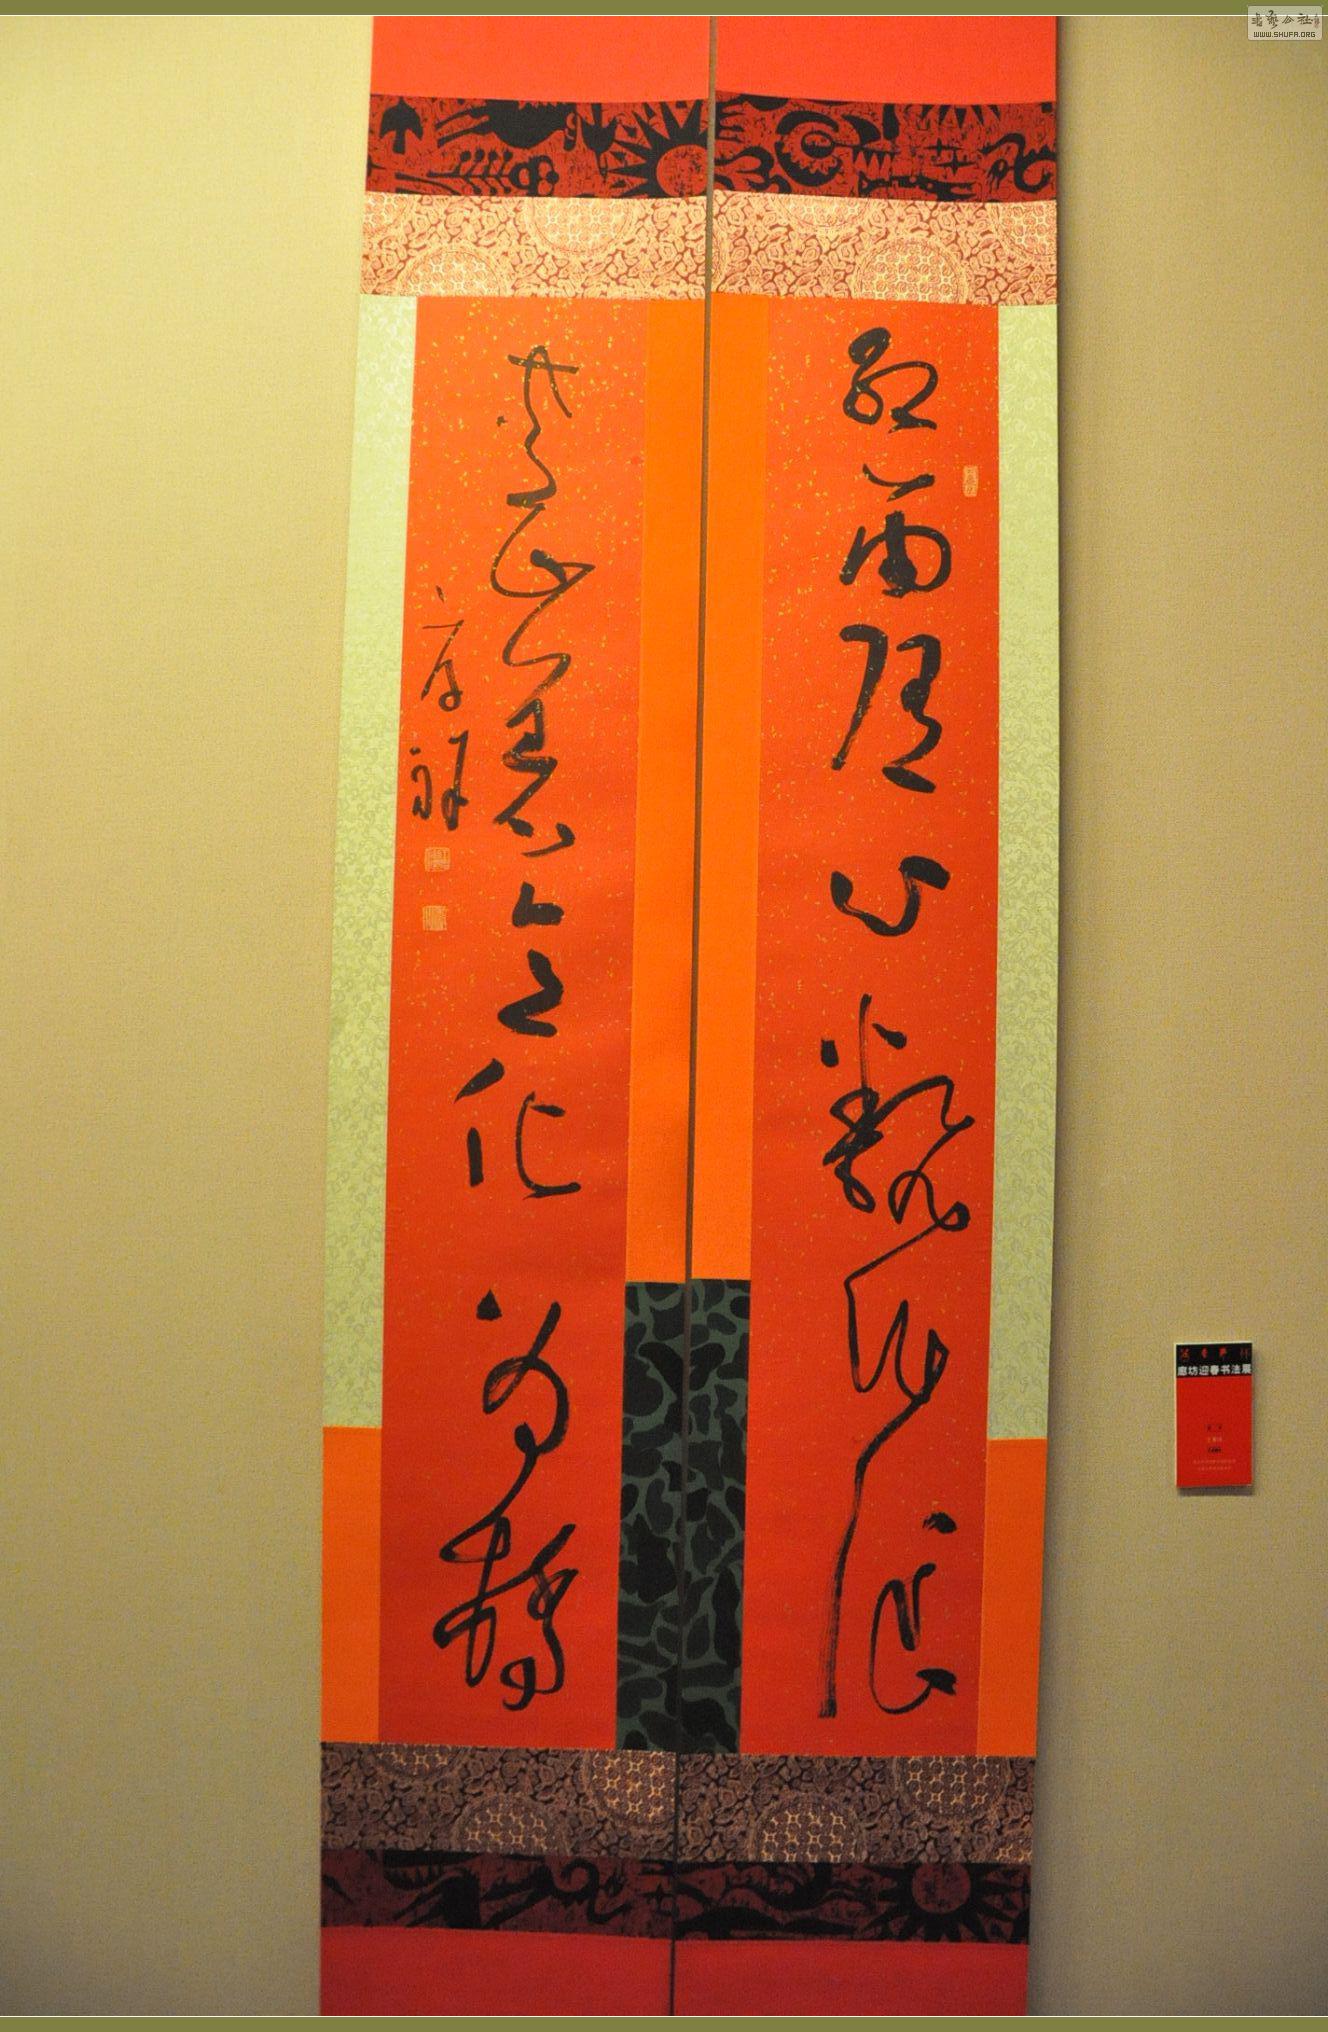 书艺公社
WWW.SHUFA.ORG
红雨随心翻作浪
青山着意化为桥
廊坊迎春书法展